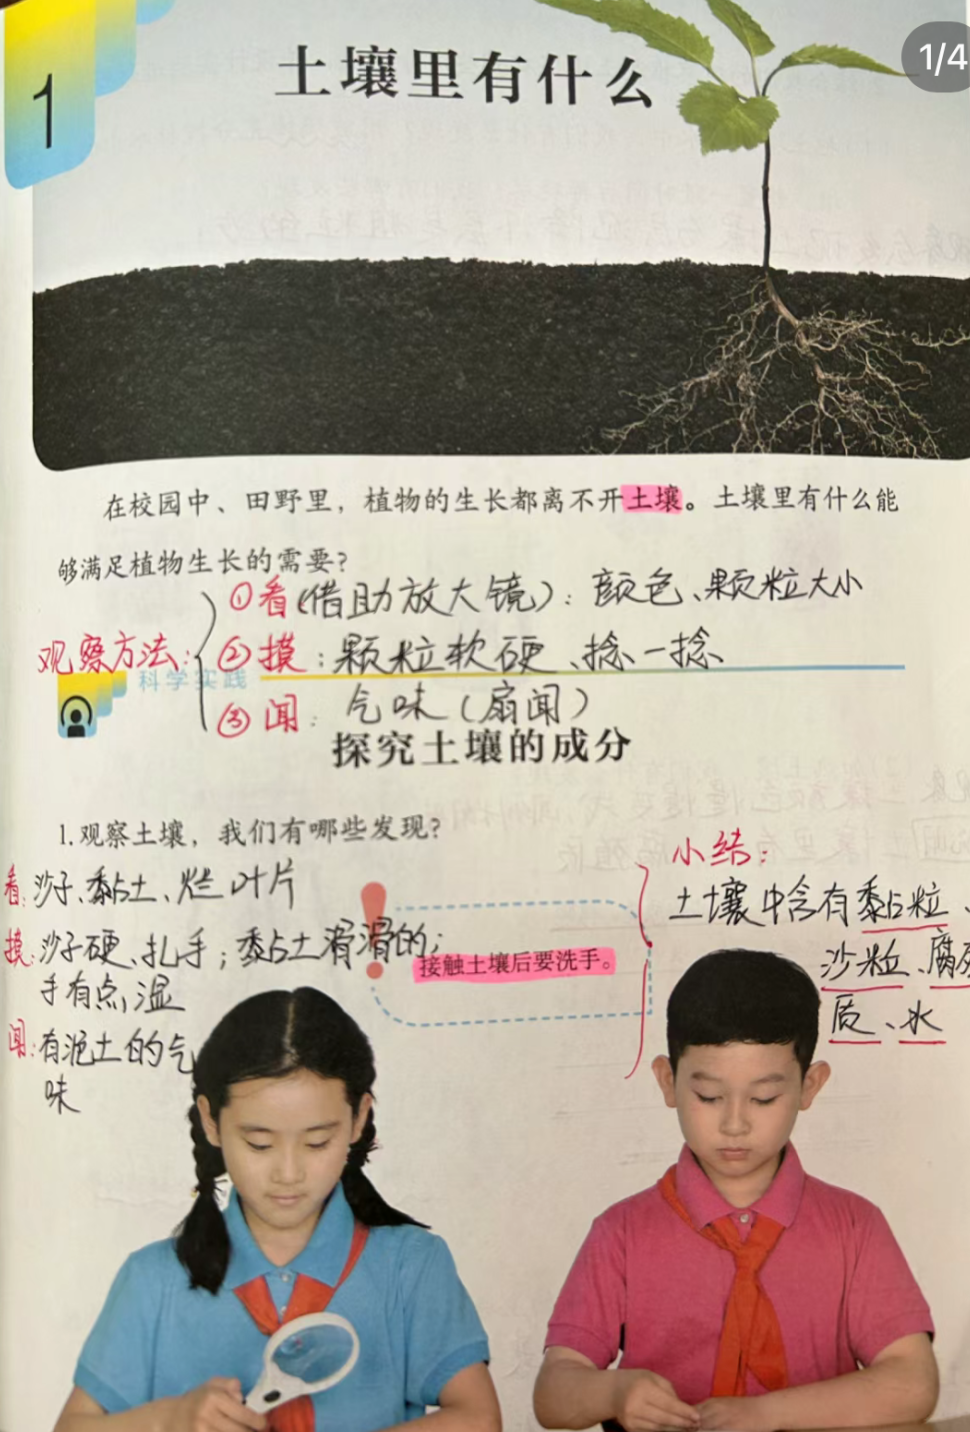 1/4
1
土壤里有什么
在校园中、田野里，植物的生长都离不开土壤。土壤里有什么能
够满足植物生长的需要？
观察方法：
①看(借助放大镜)：颜色、颗粒大小
②摸：颗粒软硬、捻一捻
③闻：气味(扇闻)
科学实践
探究土壤的成分
1.观察土壤，我们有哪些发现？
看：沙子、黏土、烂叶片
摸：沙子硬、扎手；黏土滑滑的；
手有点湿
闻：有泥土的气
味
接触土壤后要洗手。
小结：
土壤中含有黏粒、
沙粒、腐殖
质、水